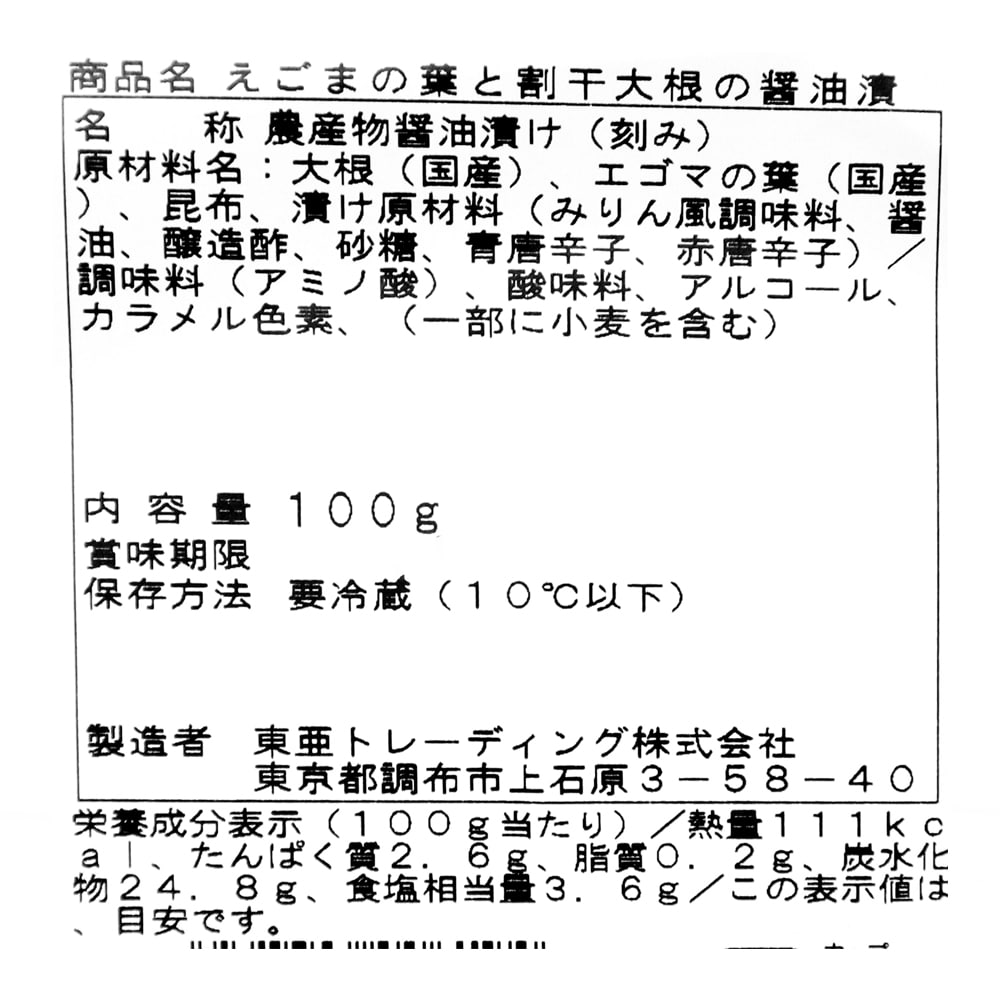 商品名 えごまの葉と割干大根の醤油漬
名　　称 農産物醤油漬け（刻み）
原材料名：大根（国産）、エゴマの葉（国産
）、昆布、漬け原材料（みりん風調味料、醤
油、醸造酢、砂糖、青唐辛子、赤唐辛子）／
調味料（アミノ酸）、酸味料、アルコール、
カラメル色素、（一部に小麦を含む）
内 容 量 １００ｇ
賞味期限
保存方法 要冷蔵（１０℃以下）
製造者 東亜トレーディング株式会社
東京都調布市上石原３－５８－４０
栄養成分表示（１００ｇ当たり）／熱量１１１ｋｃ
ａｌ、たんぱく質２．６ｇ、脂質０．２ｇ、炭水化
物２４．８ｇ、食塩相当量３．６ｇ／この表示値は
、目安です。